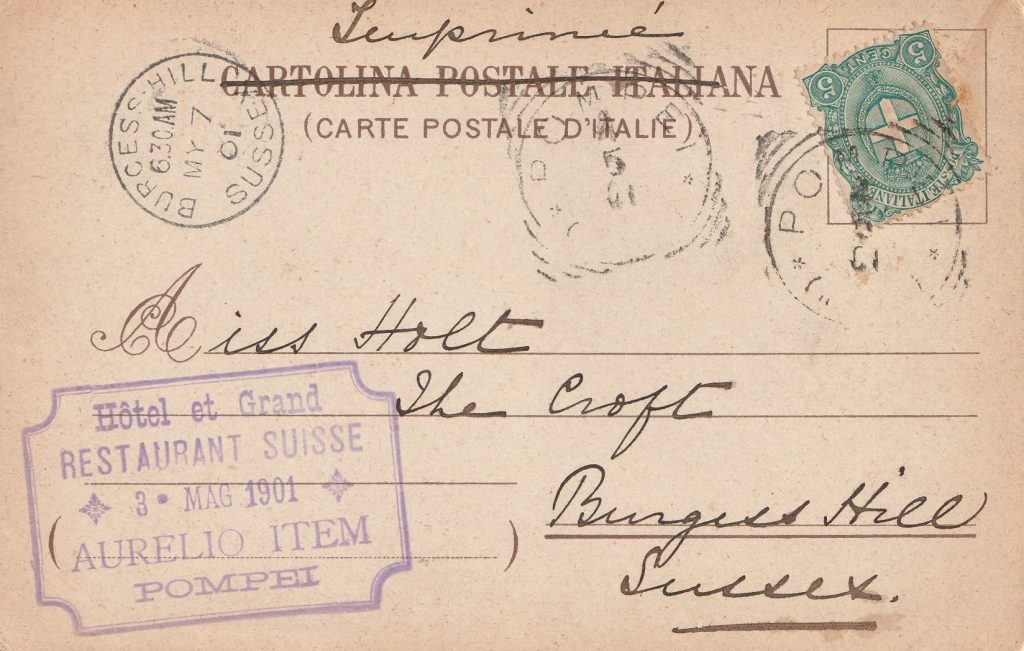 Imprimé
CARTOLINA POSTALE ITALIANA
(CARTE POSTALE D'ITALIE)
BURGESS-HILL SUSSEX
6.30 AM
MY 7
01
POMPEI
5
01
5 CENT. 5
POSTE ITALIANE
PO
01
A
Miss Holt
The Croft
Burgess Hill
Sussex.
Hôtel et Grand
RESTAURANT SUISSE
3 • MAG 1901
AURELIO ITEM
POMPEI